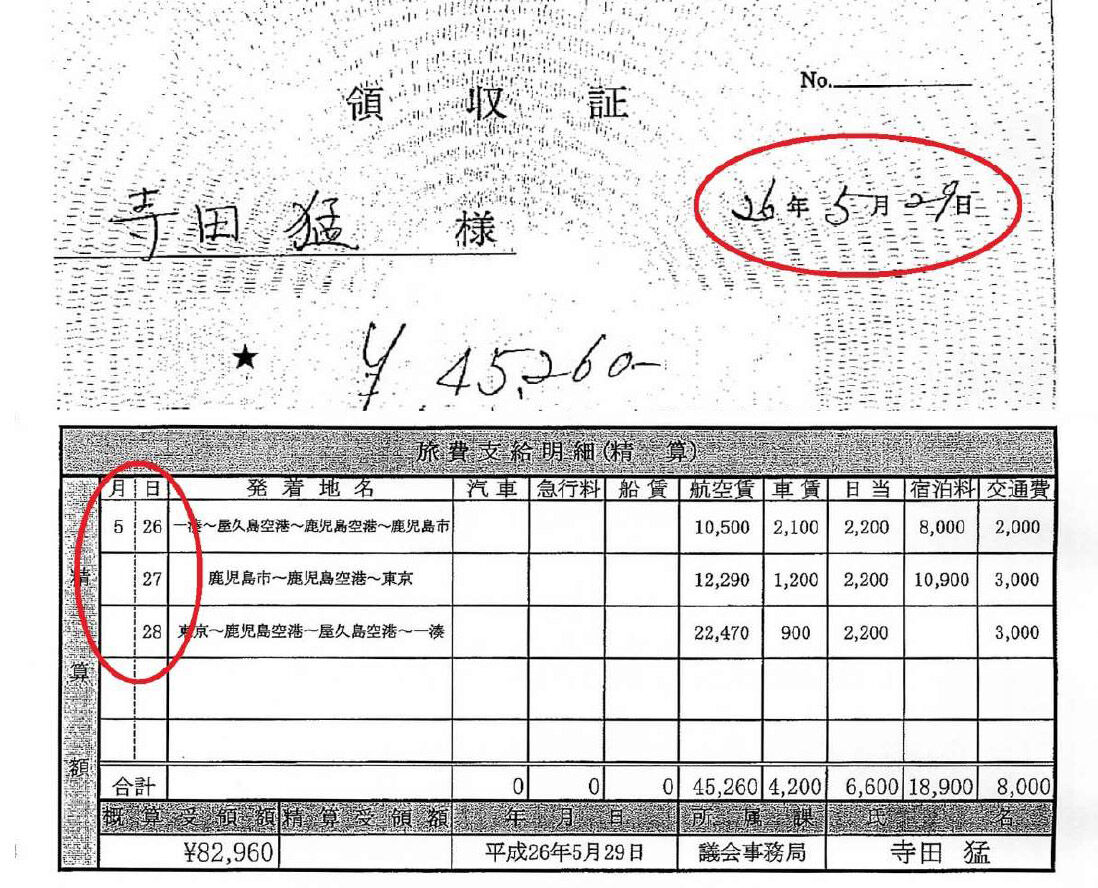 No.
領収証
26年5月29日
寺田 猛 様
★ ¥45,260-
旅費支給明細(精 算)
月 日 発着地名 汽車 急行料 船賃 航空賃 車賃 日当 宿泊料 交通費
5 26 一湊～屋久島空港～鹿児島空港～鹿児島市 10,500 2,100 2,200 8,000 2,000
27 鹿児島市～鹿児島空港～東京 12,290 1,200 2,200 10,900 3,000
28 東京～鹿児島空港～屋久島空港～一湊 22,470 900 2,200 3,000
精算額
合計 0 0 0 45,260 4,200 6,600 18,900 8,000
概算受領額 精算受領額 年月日 所属課 氏名
¥82,960 平成26年5月29日 議会事務局 寺田 猛